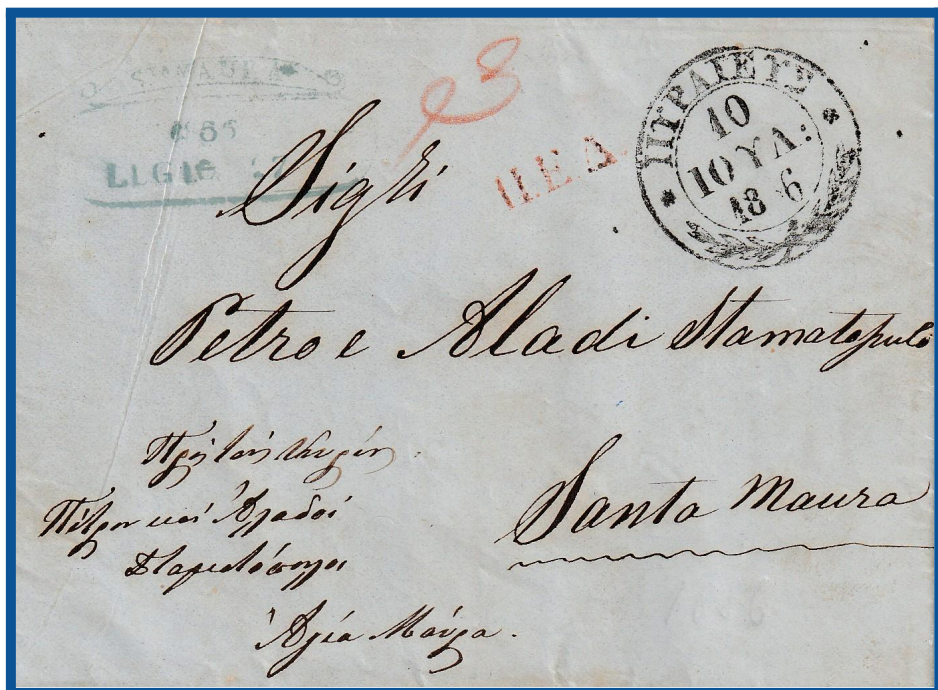 S<sup>TA</sup> MAURA
LUGLIO
Π.Ε.Δ.
ΠΥΡΑΙΕΥΣ
10
ΙΟΥΛ:
18 6
Sigri
Petro e Aladi Stamatopulo
Santa Maura
Πρὸς τοὺς Κυρίους
Πέτρον καὶ Ἀλαδοί
Σταματόπουλοι
Ἁγία Μαύρα.